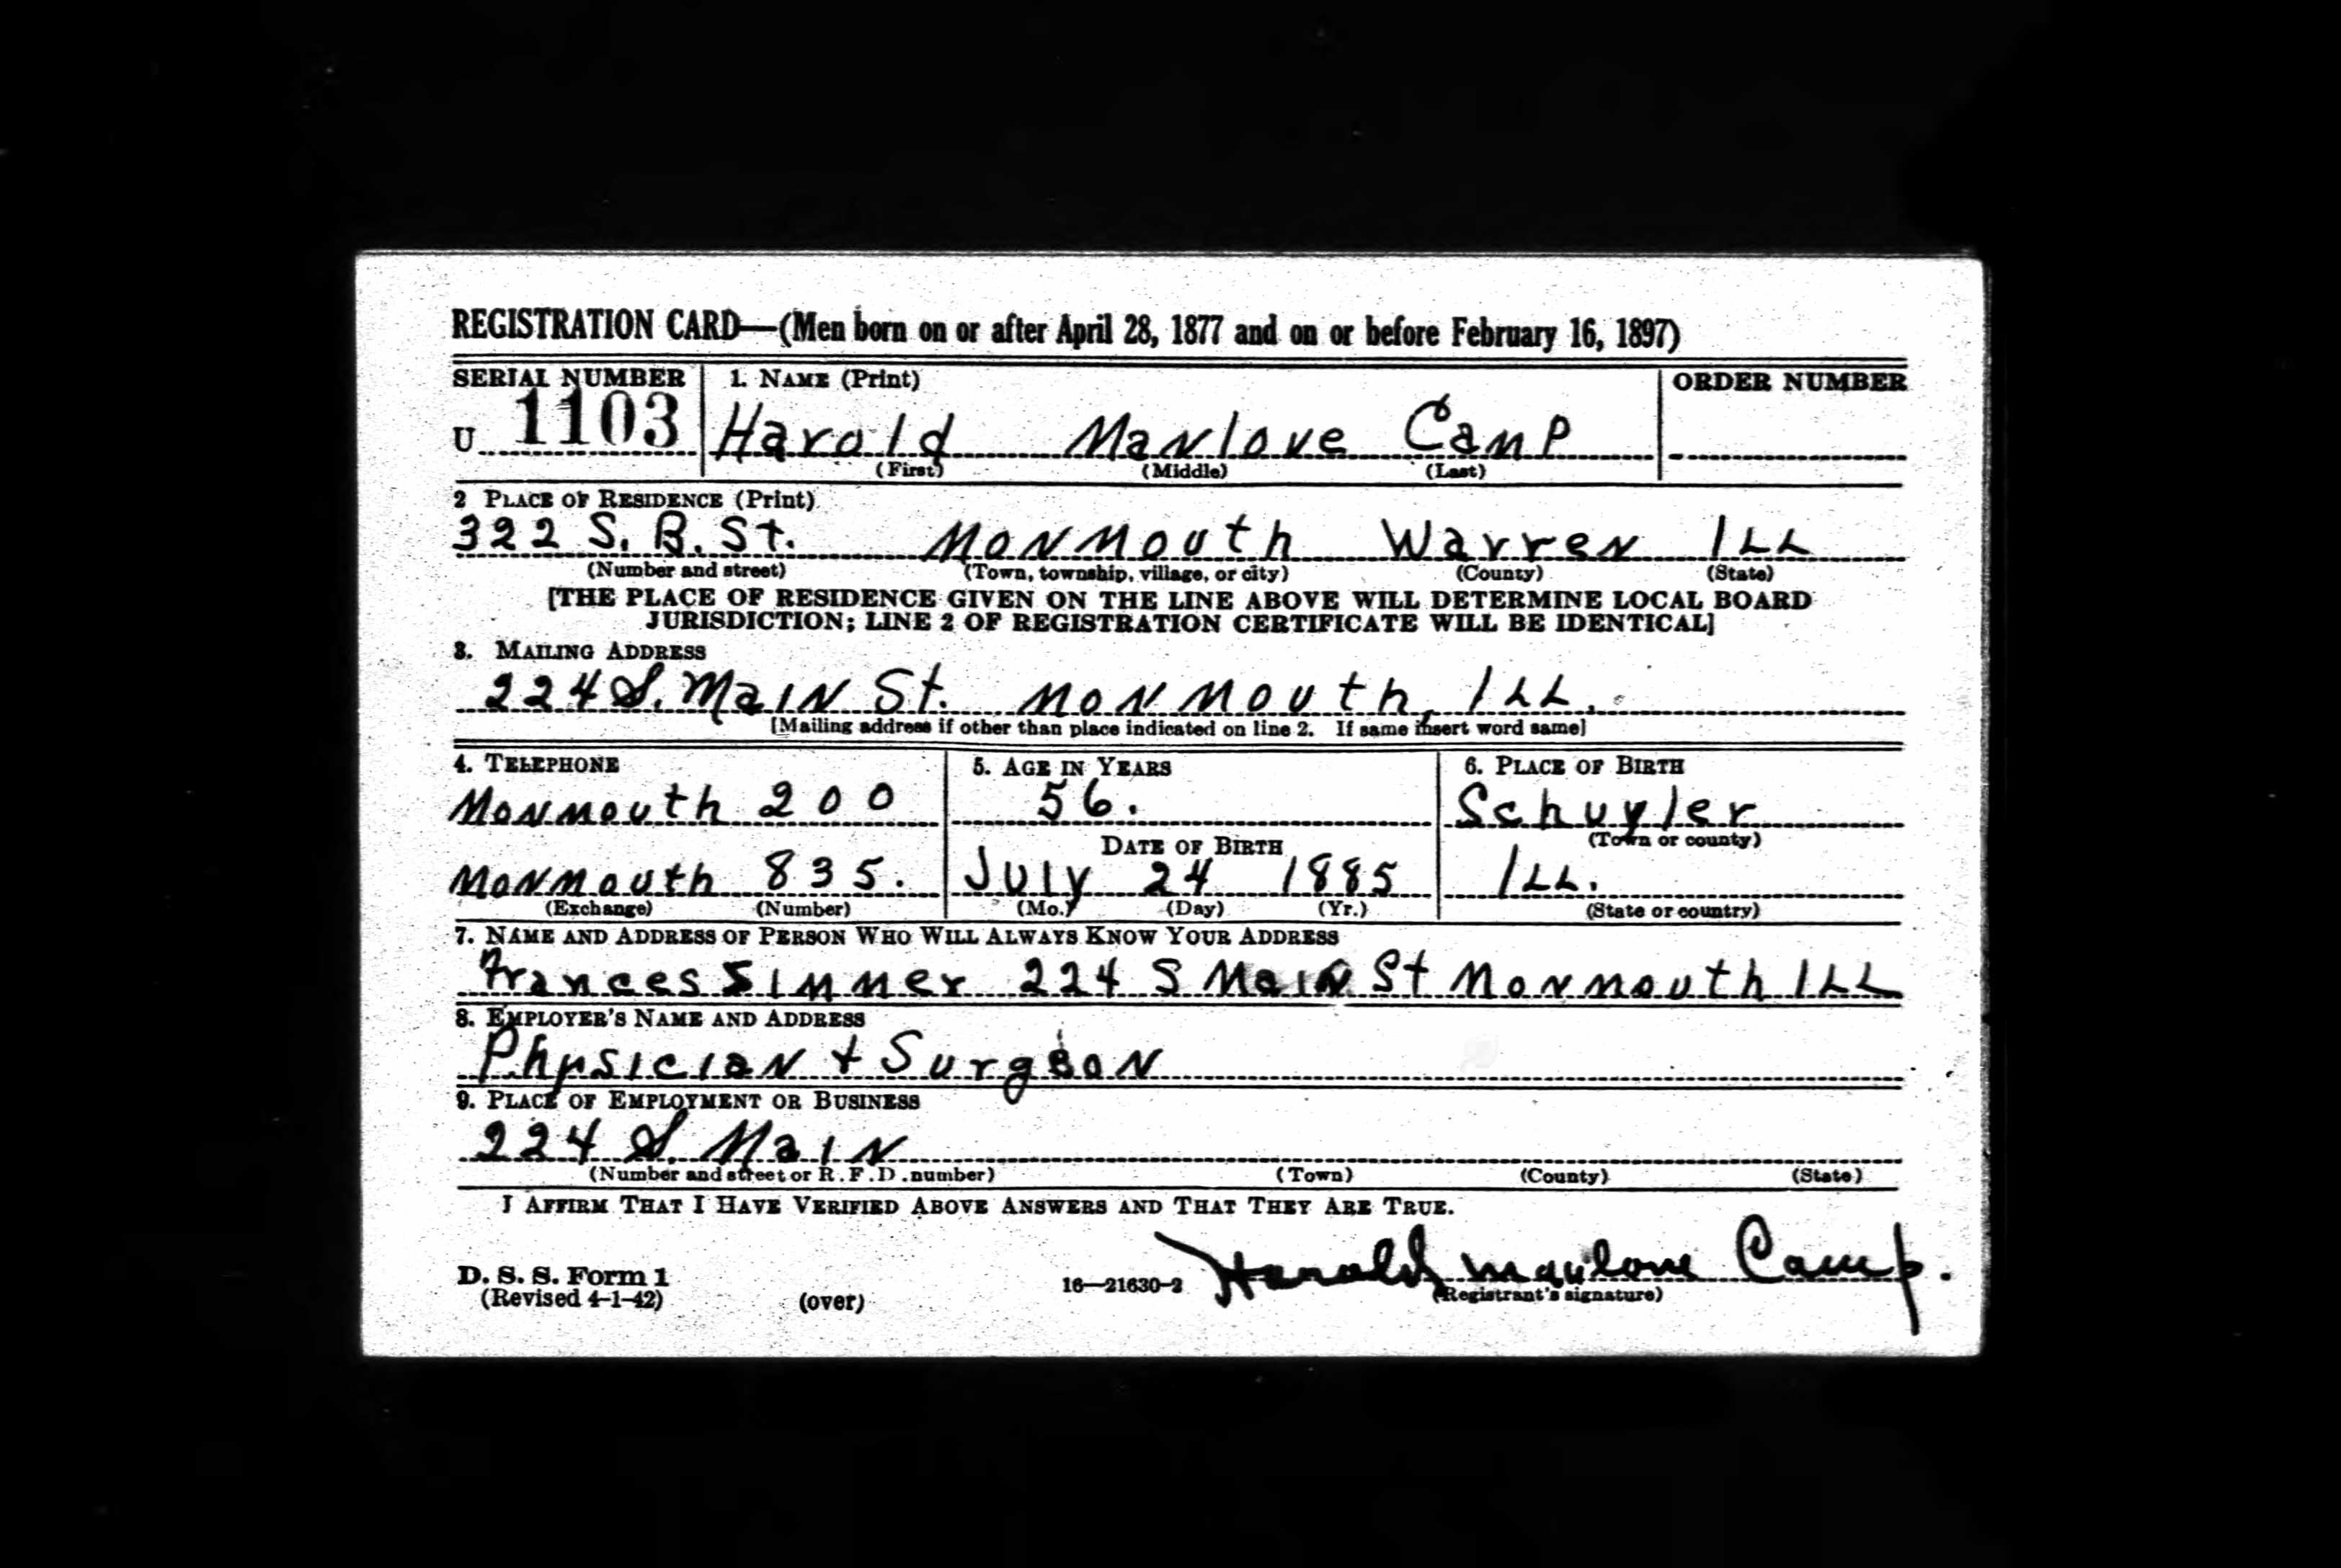 REGISTRATION CARD—(Men born on or after April 28, 1877 and on or before February 16, 1897)
SERIAL NUMBER 1. NAME (Print) ORDER NUMBER
U 1103 Harold Manlove Camp
(First) (Middle) (Last)
2 PLACE OF RESIDENCE (Print)
322 S. B. St. Monmouth Warren ILL
(Number and street) (Town, township, village, or city) (County) (State)
[THE PLACE OF RESIDENCE GIVEN ON THE LINE ABOVE WILL DETERMINE LOCAL BOARD
JURISDICTION; LINE 2 OF REGISTRATION CERTIFICATE WILL BE IDENTICAL]
3. MAILING ADDRESS
224 S. Main St. Monmouth, ILL.
[Mailing address if other than place indicated on line 2. If same insert word same]
4. TELEPHONE 5. AGE IN YEARS 6. PLACE OF BIRTH
Monmouth 200 56. Schuyler
DATE OF BIRTH (Town or county)
Monmouth 835. July 24 1885 ILL.
(Exchange) (Number) (Mo.) (Day) (Yr.) (State or country)
7. NAME AND ADDRESS OF PERSON WHO WILL ALWAYS KNOW YOUR ADDRESS
Frances Simmer 224 S Main St Monmouth ILL
8. EMPLOYER'S NAME AND ADDRESS
Physician + Surgeon
9. PLACE OF EMPLOYMENT OR BUSINESS
224 S. Main
(Number and street or R. F. D. number) (Town) (County) (State)
I AFFIRM THAT I HAVE VERIFIED ABOVE ANSWERS AND THAT THEY ARE TRUE.
Harold Manlove Camp.
D. S. S. Form 1 16—21630-2
(Revised 4-1-42) (over) (Registrant's signature)